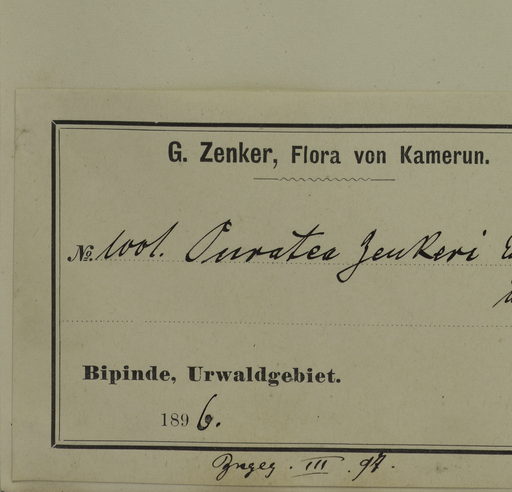 G. Zenker, Flora von Kamerun.
№. 1001. Ouratea Zenkeri
Bipinde, Urwaldgebiet.
1896.
III. 97.